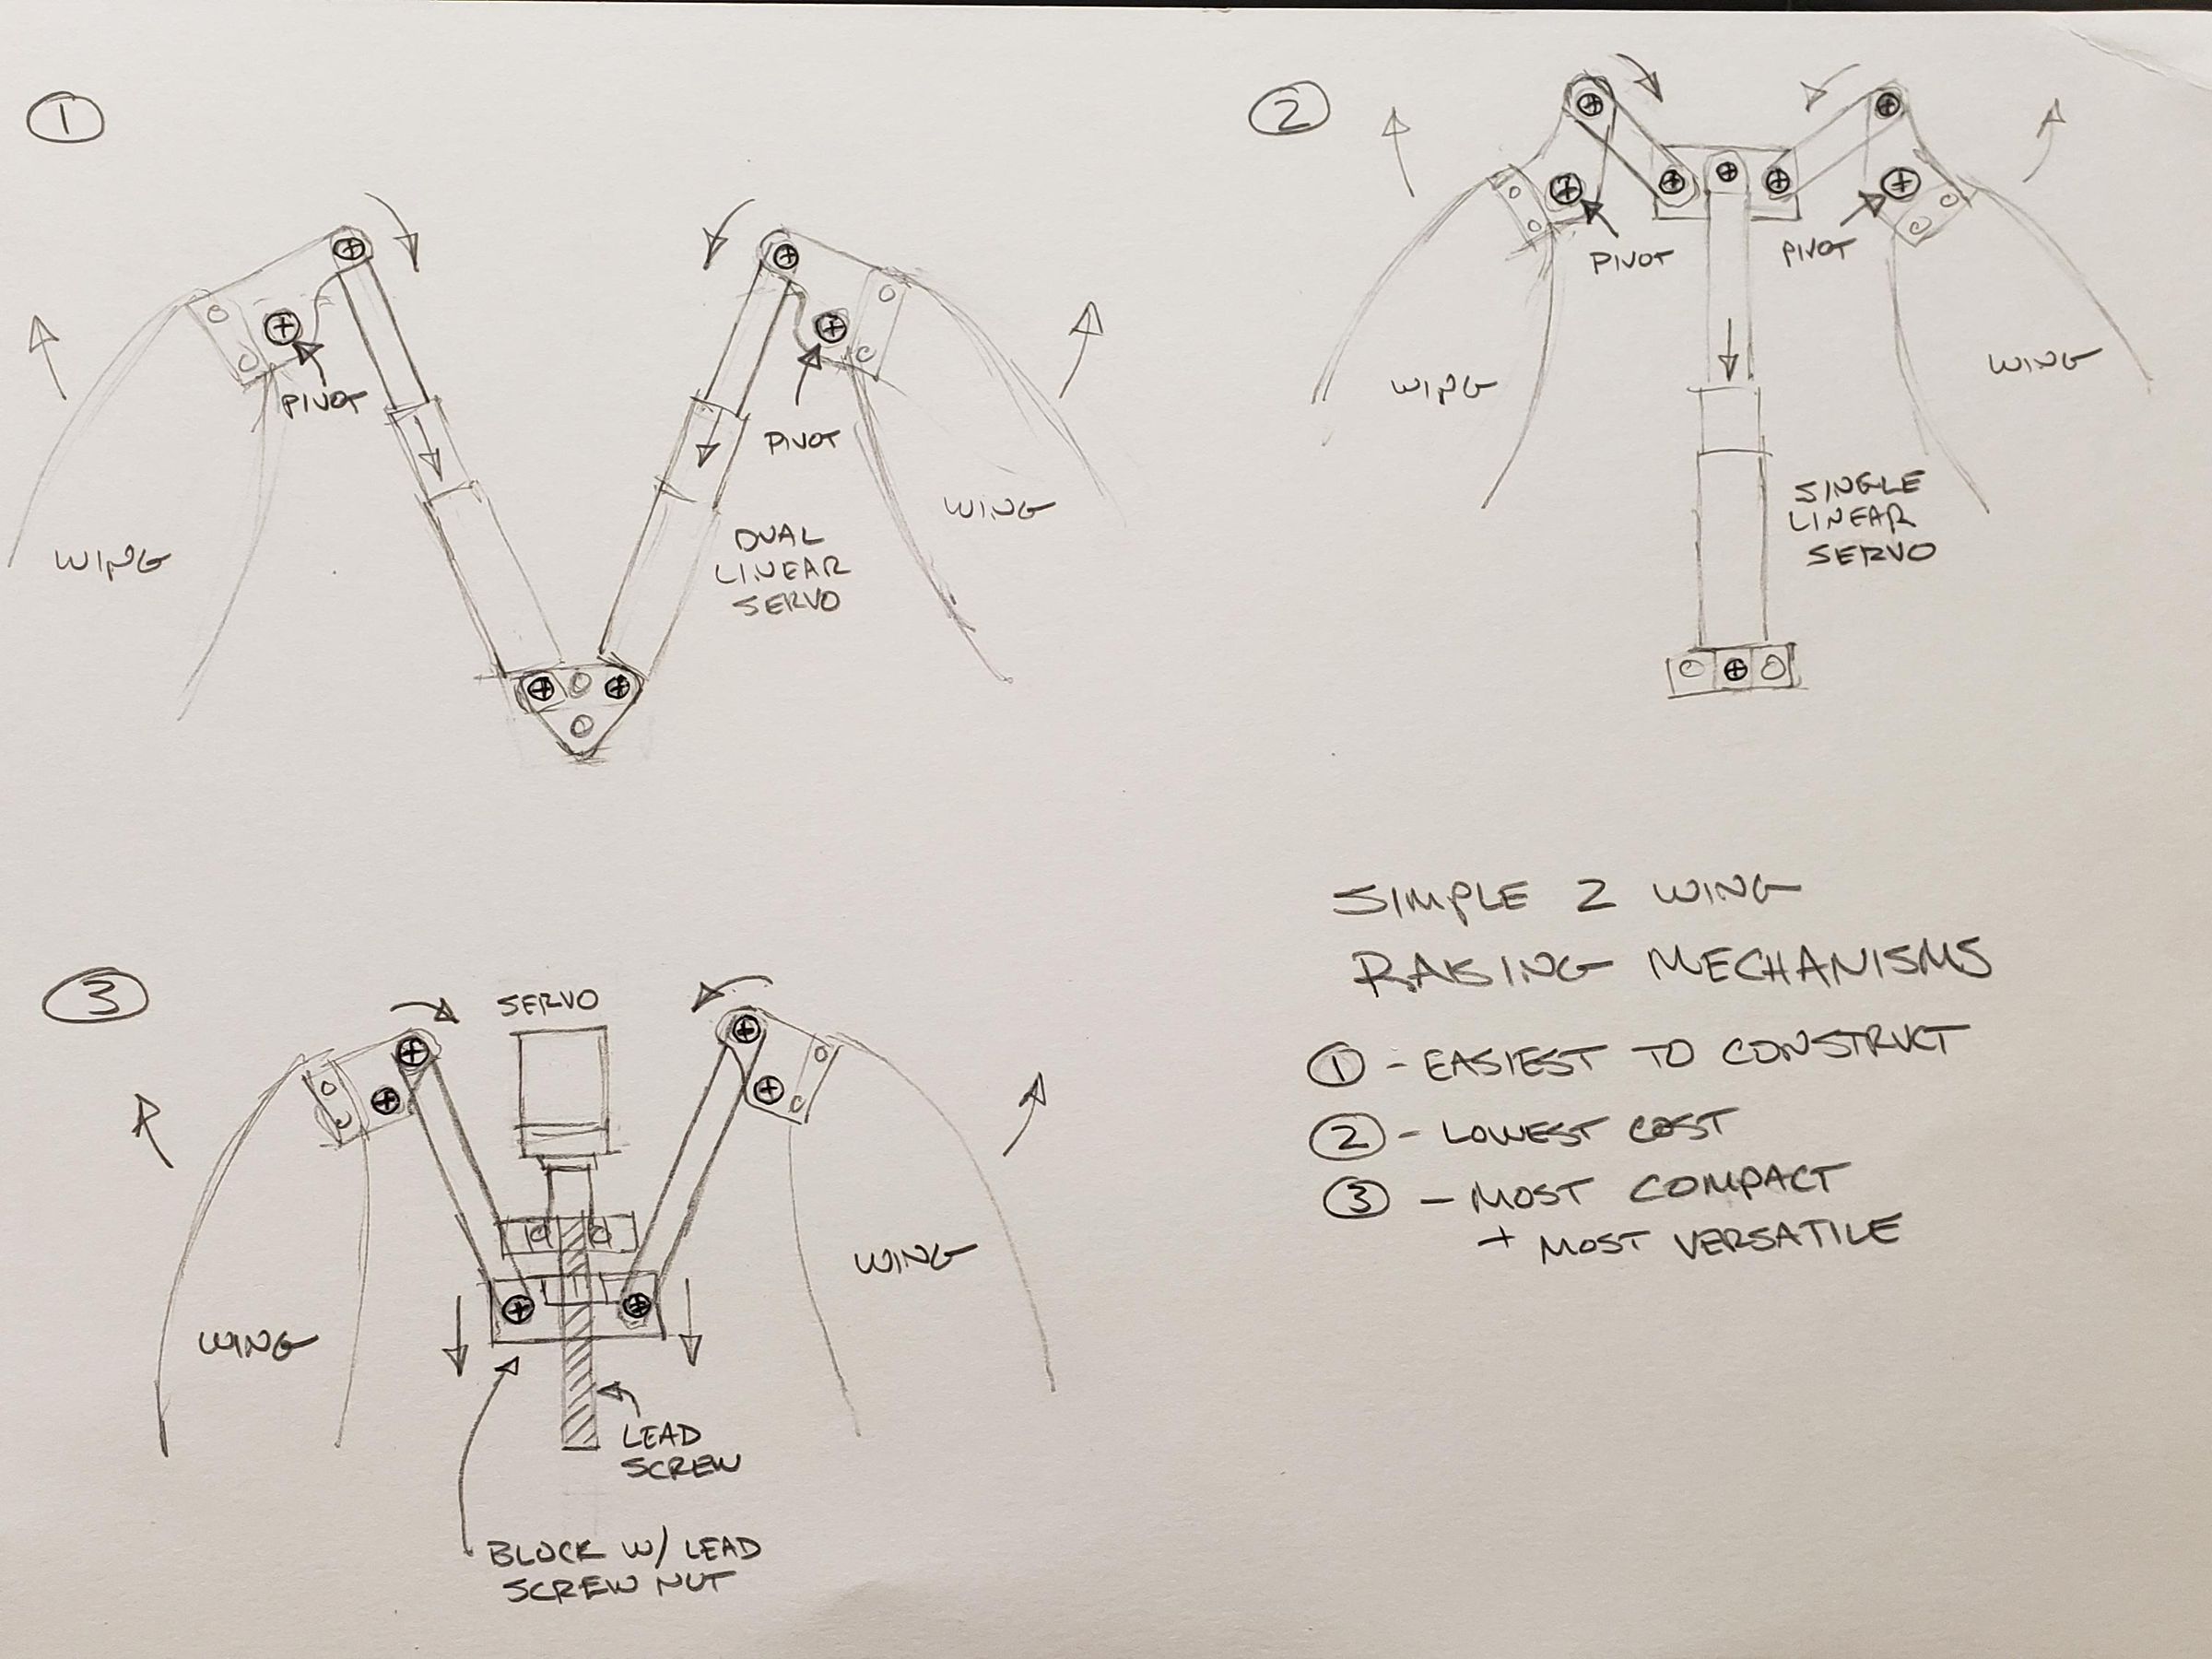 1
PIVOT
PIVOT
WING
WING
DUAL
LINEAR
SERVO
2
PIVOT
PIVOT
WING
WING
SINGLE
LINEAR
SERVO
3
SERVO
WING
WING
LEAD
SCREW
BLOCK W/ LEAD
SCREW NUT
SIMPLE 2 WING
RAISING MECHANISMS
1 - EASIEST TO CONSTRUCT
2 - LOWEST COST
3 - MOST COMPACT
+ MOST VERSATILE